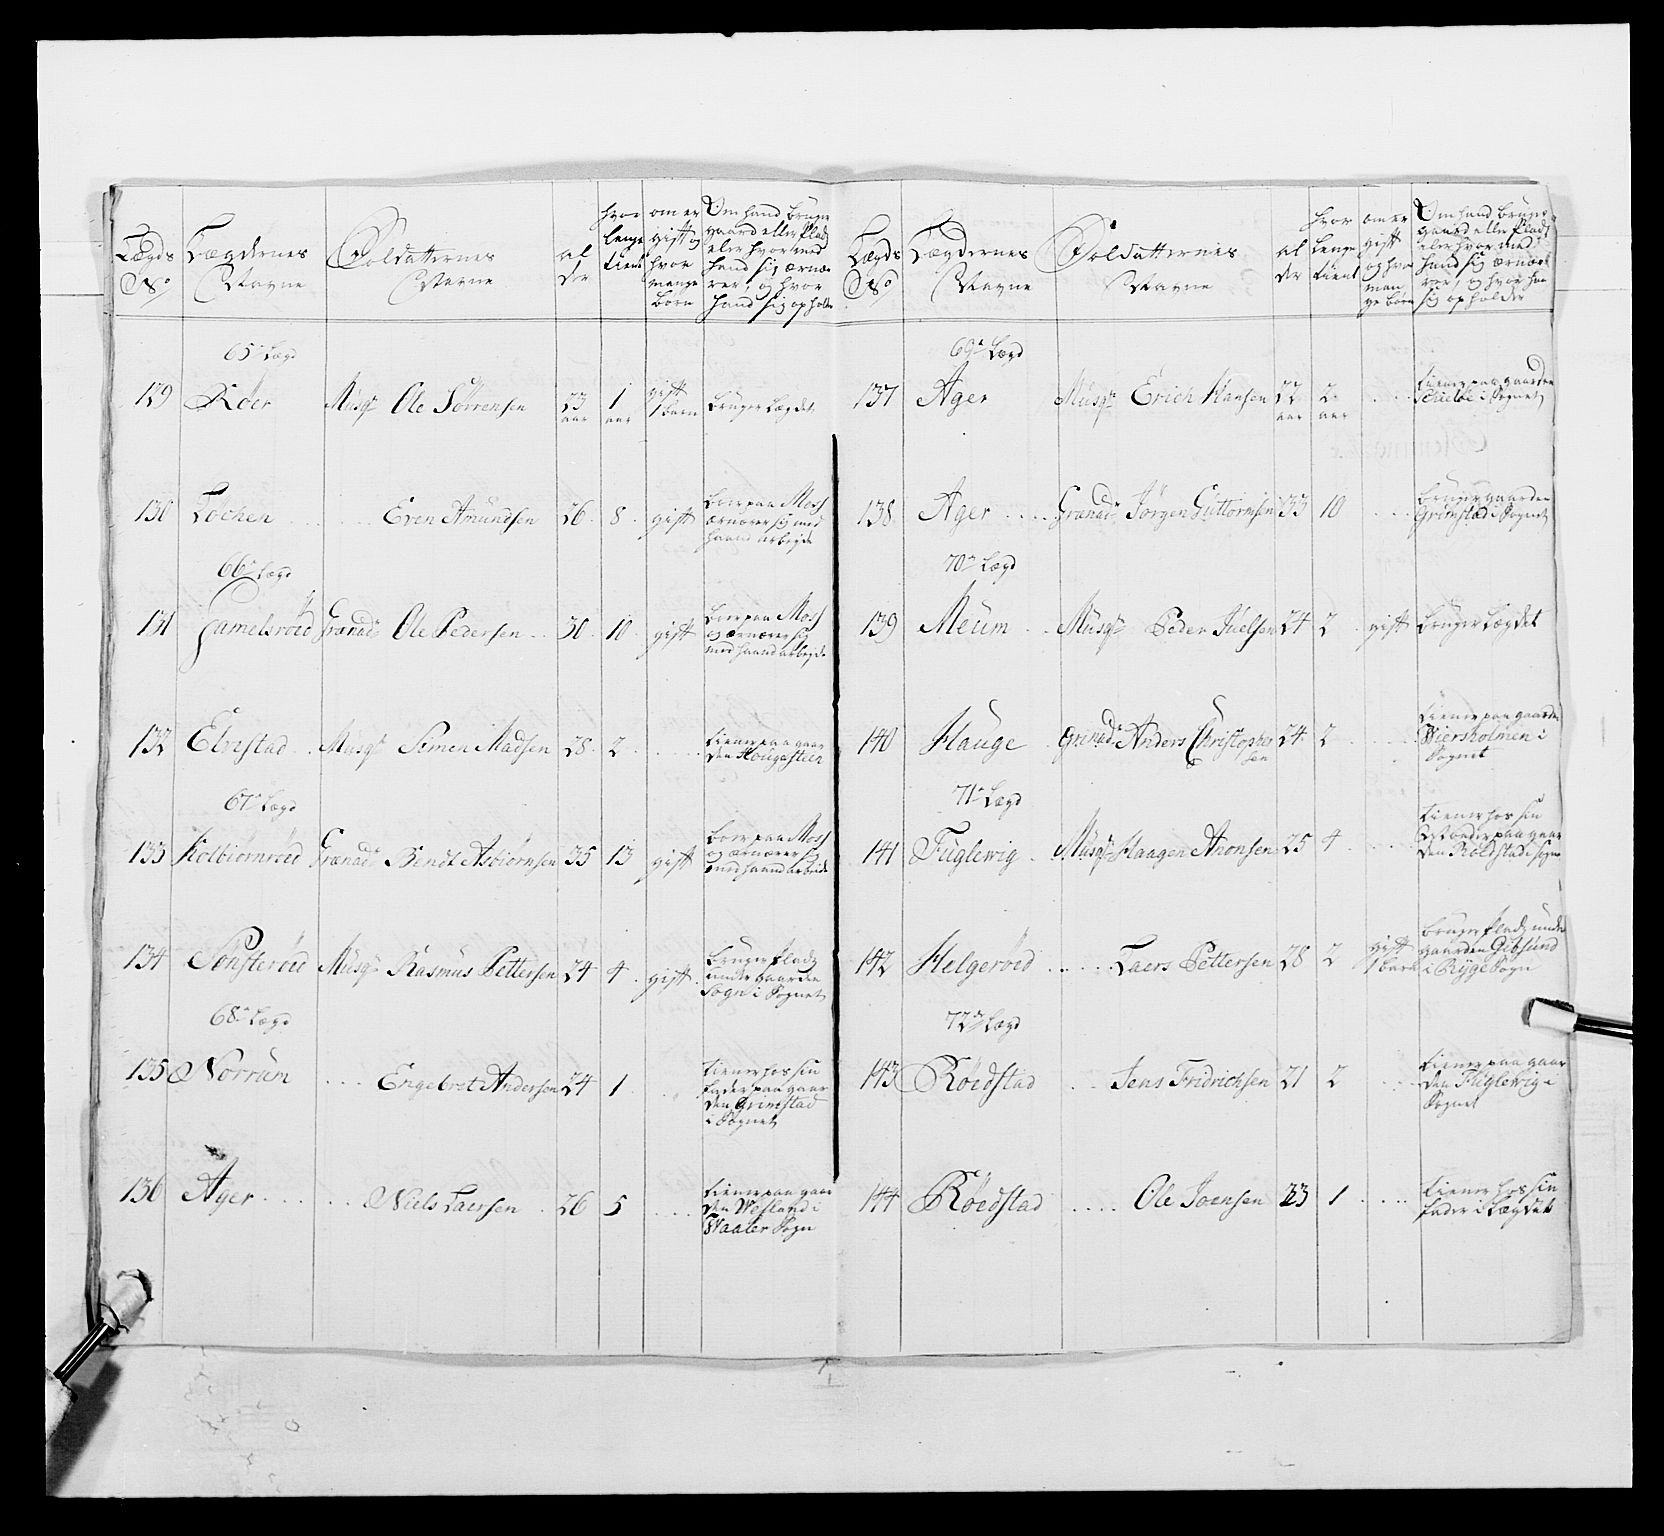 Lægds No
Lægdernes Navne
Soldatternes Navne
al der
hvor lenge tient
om er gift og hvor mange børn
Om hand bruger gaard eller Plads eler hvor med hand sig ærnærer, og hvor hand sig opholder
65de Lægd
129 Röer Musqr Ole Sörrensen 23 aar 1 aar gift 1 barn bruger Lægdet
130 Lochen Even Amundsen 26 8 gift boer paa Moss ærnærer sig med haand arbejde
66de Lægd
131 Gamelsröed Grænadr Ole Pedersen 30 10 gift boer paa Moss og ærnærer sig med haand arbejde
132 Elvestad Musqr Simen Madsen 28 2 tiener paa gaarden Hougasteen
67de Lægd
133 Kolbiörnröed Grænadr Bendt Asbiörnsen 35 13 gift boer paa Moss og ærnærer sig med haand arbeide
134 Sönsteröed Musqr Rasmus Pettersen 24 4 gift bruger Plads under gaarden Sogn i Sognet
68de Lægd
135 Norrum Engebret Andersen 24 1 tiener hos sin fader paa gaarden Grimstad i Sognet
136 Ager Niels Laersen 26 5 tiener paa gaarden Westand i Waaler Sogn
Lægds No
Lægdernes Navne
Soldatternes Navne
al der
hvor lenge tient
om er gift og hvor mange børn
Om hand bruger gaard eller Plads eler hvor med hand sig ærnærer, og hvor han sig opholder
69de Lægd
137 Ager Musqr Erich Hansen 22 aar 2 aar tiener paa gaarden i Sognet
138 Ager Grænadr Jörgen Guttormsen 33 10 bruger gaarden Grimstad i Sognet
70de Lægd
139 Meum Musqr Peder Juelsen 24 2 gift bruger Lægdet
140 Hauge Grenadr Anders Christophersen 24 2 tiener paa gaarden Wiersholmen i Sognet
71de Lægd
141 Fuglewig Musqr Haagen Aronsen 25 4 tiener hos sin paa gaarden Röedstad i Sogne
142 Helgeröed Laers Pettersen 28 2 gift 1 barn bruger Plads under gaarden Gibsund i Rÿge Sogn
72de Lægd
143 Röedstad Jens Fridrichsen 21 2 tiener paa gaarden Fuglewig i Sognet
144 Röedstad Ole Joensen 23 1 tiener hos sin fader i Lægdet